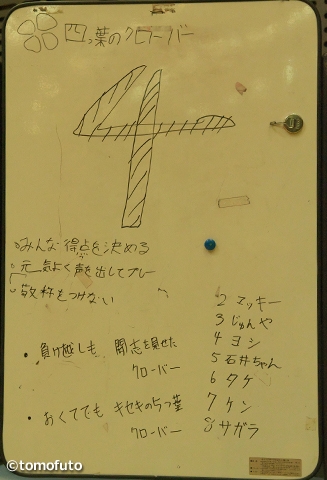 四つ葉のクローバー
4
みんな得点を決める
元気よく声を出してプレー
敬称をつけない
負け越しも 闘志を見せた
クローバー
おくてでも キセキの5つ葉
クローバー
2 マッキー
3 じゅんや
4 ヨシ
5 石井ちゃん
6 タケ
7 ケン
8 サガラ
©tomofuto